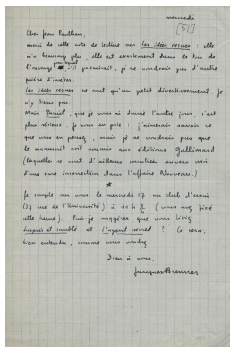 mercredi
[51]
Cher Jean Paulhan,
merci de cette note de lecture sur Les idées reçues, elle
m'a beaucoup plu, elle est exactement dans le ton de
l'ouvrage paraissait, je ne voudrais pas d'autre
prière d'insérer.
Les idées reçues ne sont qu'un petit divertissement, je
n'y tiens pas.
Mais Daniel, que je vous ai donné l'autre jour, c'est
plus sérieux, je vous en prie, j'aimerais savoir ce
que vous en pensez, mais je ne voudrais pas que
le manuscrit soit soumis aux éditions Gallimard
(lesquelles se sont d'ailleurs montrées envers moi
d'une rare incorrection dans l'affaire Nouveau.)
*
Je compte sur vous le mercredi 17 au club d'essai
(37 rue de l'Université) à (vous avez fixé
cette heure). Puis-je suggérer que vous lisiez
et L'agent secret ? Ce sera,
bien entendu, comme vous voudrez.
Bien à vous,
Jacques Brenner